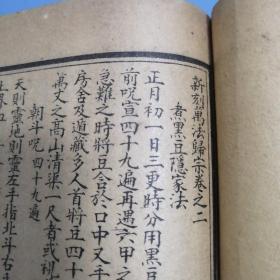 新刻萬法歸宗卷之二
煮黑豆隱家法
正月初一日三更時分用黑豆
前呪宣四十九遍再遇六甲之
急難之時將豆含於口中又
房舍及遁藏多人首將豆四十
萬丈之高山清渠一尺者或現
朝斗呪四十九遍
天則靈地則靈左手指北斗右